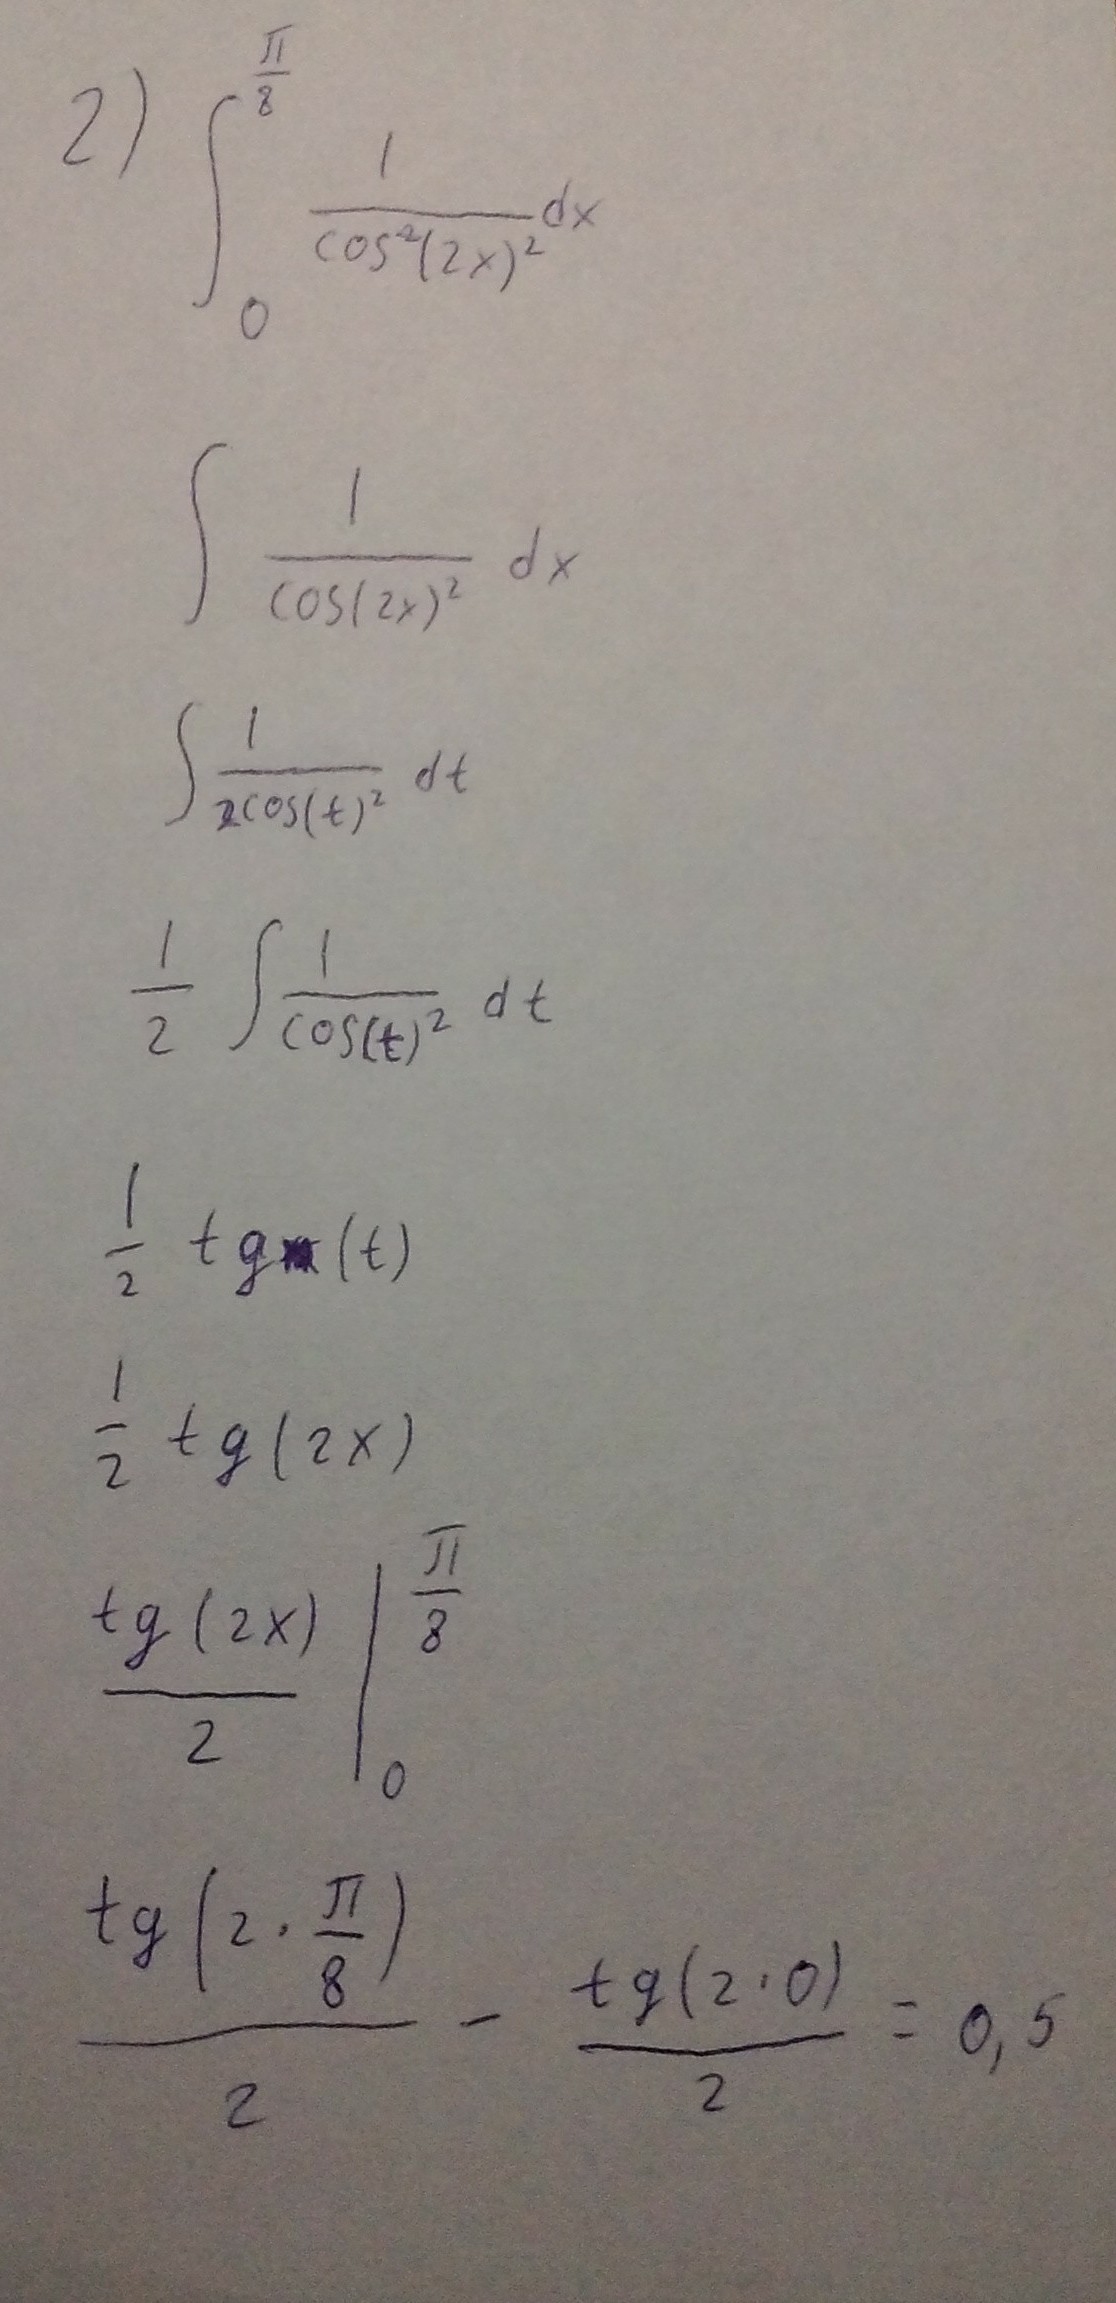 2) ∫₀^(π/8) 1/(cos²(2x)²) dx
∫ 1/(cos(2x)²) dx
∫ 1/(2cos(t)²) dt
1/2 ∫ 1/(cos(t)²) dt
1/2 tg(t)
1/2 tg(2x)
tg(2x)/2 |₀^(π/8)
tg(2·π/8)/2 - tg(2·0)/2 = 0,5